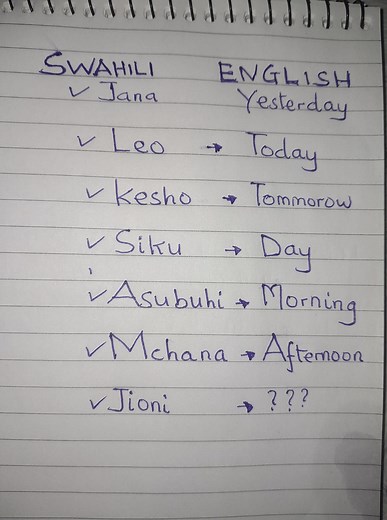 SWAHILI ENGLISH
✓ Jana Yesterday
✓ Leo → Today
✓ Kesho → Tommorow
✓ Siku → Day
✓ Asubuhi → Morning
✓ Mchana → Afternoon
✓ Jioni → ???